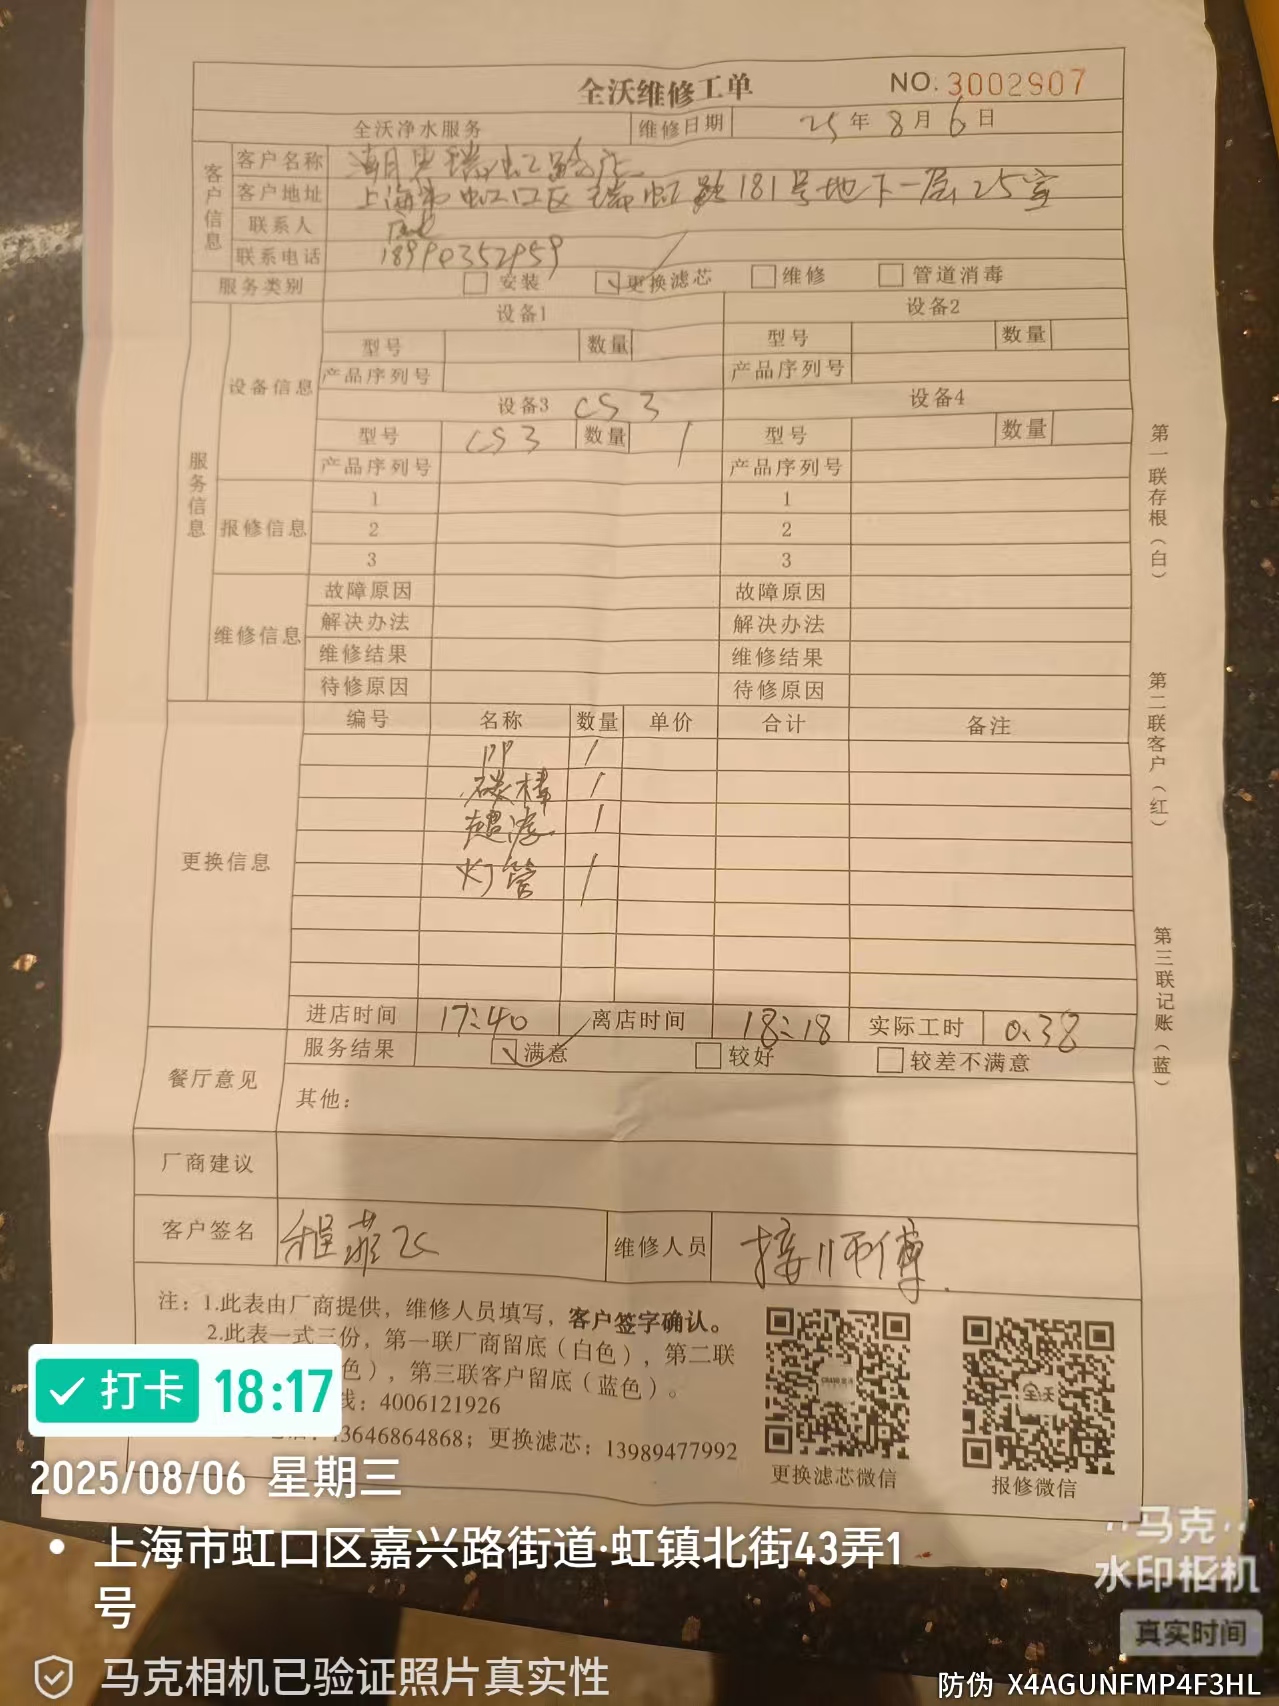 全沃维修工单 NO: 3002907
全沃净水服务 维修日期 25年8月6日
客户信息
客户名称 瑞虹店
客户地址 上海市虹口区瑞虹路181号地下一层25室
联系人
联系电话
服务类别 安装 更换滤芯 维修 管道消毒
服务信息
设备信息
设备1 设备2
型号 数量 型号 数量
产品序列号 产品序列号
设备3 CS3 设备4
型号 CS3 数量 1 型号 数量
产品序列号 产品序列号
报修信息
1 1
2 2
3 3
维修信息
故障原因 故障原因
解决办法 解决办法
维修结果 维修结果
待修原因 待修原因
更换信息
编号 名称 数量 单价 合计 备注
PP 1
碳棒 1
超滤 1
灯管 1
进店时间 17:40 离店时间 18:18 实际工时 0.38
餐厅意见
服务结果 满意 较好 较差不满意
其他:
厂商建议
客户签名 程 维修人员 师傅
注: 1.此表由厂商提供,维修人员填写,客户签字确认。
2.此表一式三份,第一联厂商留底(白色),第二联
色),第三联客户留底(蓝色)。
线: 4006121926
13646864868; 更换滤芯: 13989477992
更换滤芯微信 报修微信
全沃
第一联存根(白)
第二联客户(红)
第三联记账(蓝)
打卡 18:17
2025/08/06 星期三
上海市虹口区嘉兴路街道·虹镇北街43弄1
号
马克相机已验证照片真实性
马克
水印相机
真实时间
防伪 X4AGUNFMP4F3HL